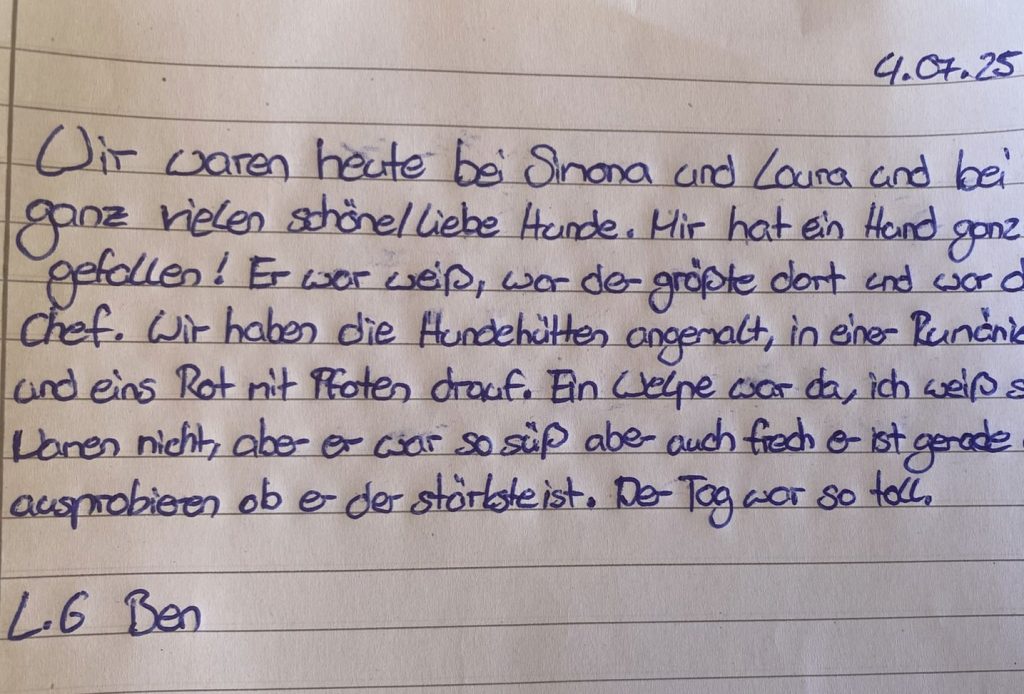 4.07.25
Wir waren heute bei Simona und Laura und bei
ganz vielen schöne/liebe Hunde. Mir hat ein Hund ganz
gefallen! Er war weiß, war der größte dort und war
Chef. Wir haben die Hundehütten angemalt, in einer
und eins Rot mit Pfoten drauf. Ein Welpe war da, ich weiß
Namen nicht, aber er war so süß aber auch frech er ist gerade
ausprobieren ob er der stärkste ist. Der Tag war so toll.
L.G Ben